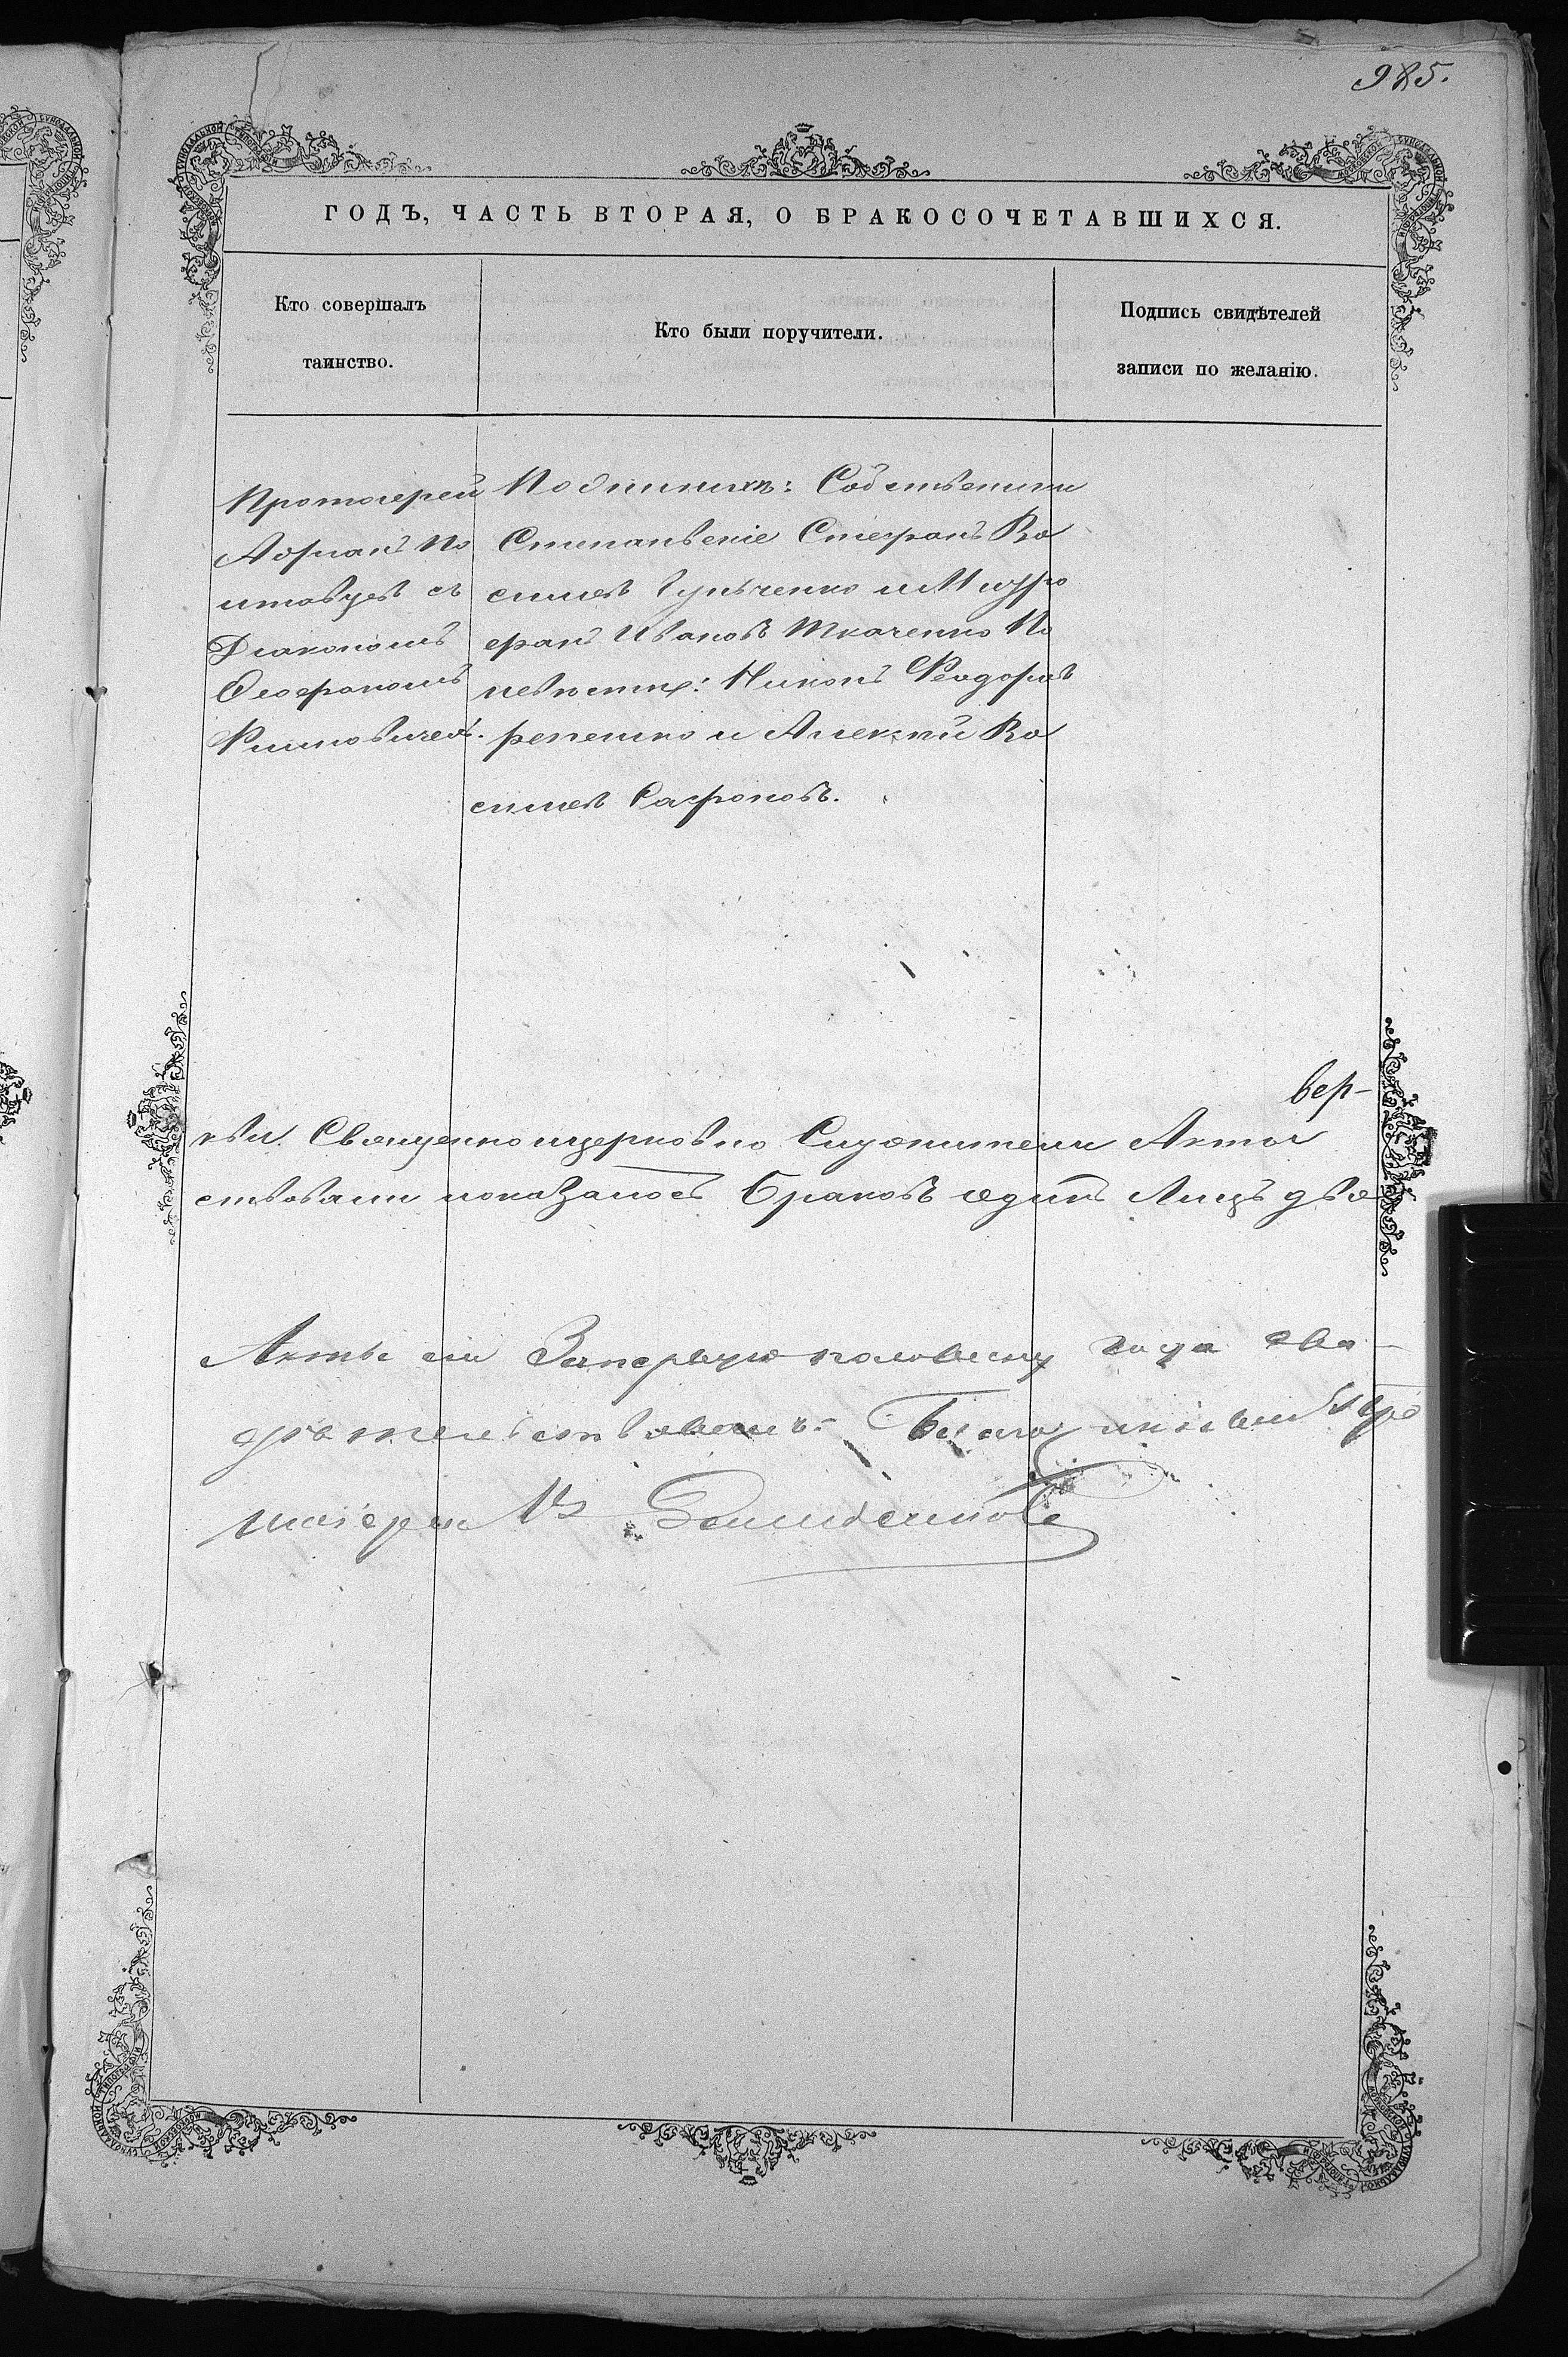 985.
ГОДЪ, ЧАСТЬ ВТОРАЯ, О БРАКОСОЧЕТАВШИХСЯ.
Кто совершалъ
таинство.
Кто были поручители.
Подпись свидѣтелей
записи по желанію.
Протоіерей
Адріанъ По
лтавцевъ съ
Діакономъ
Ѳеофаномъ
Поженихѣ: Собственники
Стефанъ Ва
сильевъ и Митро
фанъ Ивановъ Ткаченко По
невѣстѣ: Никонъ Ѳеодоровъ
и Алексѣй Ва
сильевъ Сафоновъ.
вер-
кви Священноицерковно Служители Акто
ствовали показалось Браковъ единъ Лицъ двѣ
Акты сіи Запервую половину года сви-
дѣтельствовалъ: Благочинный Про
тоіерей